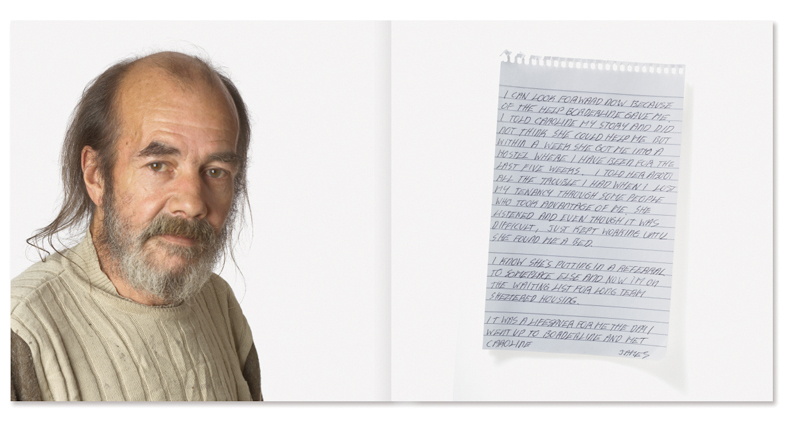 I CAN LOOK FORWARD NOW BECAUSE
OF THE HELP BORDERLINE GAVE ME,
I TOLD CAROLINE MY STORY AND DID
NOT THINK SHE COULD HELP ME BUT
WITHIN A WEEK SHE GOT ME INTO A
HOSTEL WHERE I HAVE BEEN FOR THE
LAST FIVE WEEKS. I TOLD HER ABOUT
ALL THE TROUBLE I HAD WHEN I
MY TENANCY THROUGH SOME PEOPLE
WHO TOOK ADVANTAGE OF ME, SHE
LISTENED AND EVEN THOUGH IT WAS
DIFFICULT, JUST KEPT WORKING UNTIL
SHE FOUND ME A BED.
I KNOW SHE'S PUTTING IN A REFERRAL
TO SOMEPLACE ELSE AND NOW I'M ON
THE WAITING LIST FOR LONG TERM
SHELTERED HOUSING.
IT WAS A LIFESAVER FOR ME THE DAY I
WENT UP TO BORDERLINE AND MET
CAROLINE
JAMES